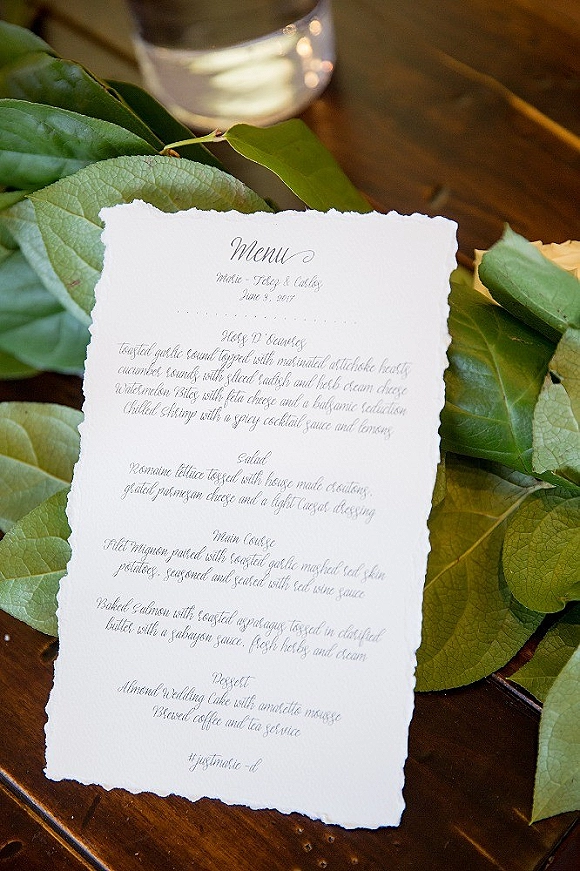 Menu
Marie - Terez & Carlos
June 3, 2017
Hors D'Oeuvres
toasted garlic round topped with marinated artichoke hearts
cucumber rounds with sliced radish and herb cream cheese
Watermelon Bites with feta cheese and a balsamic reduction
Chilled Shrimp with a spicy cocktail sauce and lemons
Salad
Romaine lettuce tossed with house made croutons,
grated parmesan cheese and a light Caesar dressing
Main Course
Filet Mignon paired with roasted garlic mashed red skin
potatoes, seasoned and seared with red wine sauce
Baked Salmon with roasted asparagus tossed in clarified
butter with a sabayon sauce, fresh herbs and cream
Dessert
Almond Wedding Cake with amaretto mousse
Brewed coffee and tea service
#justmarie-d